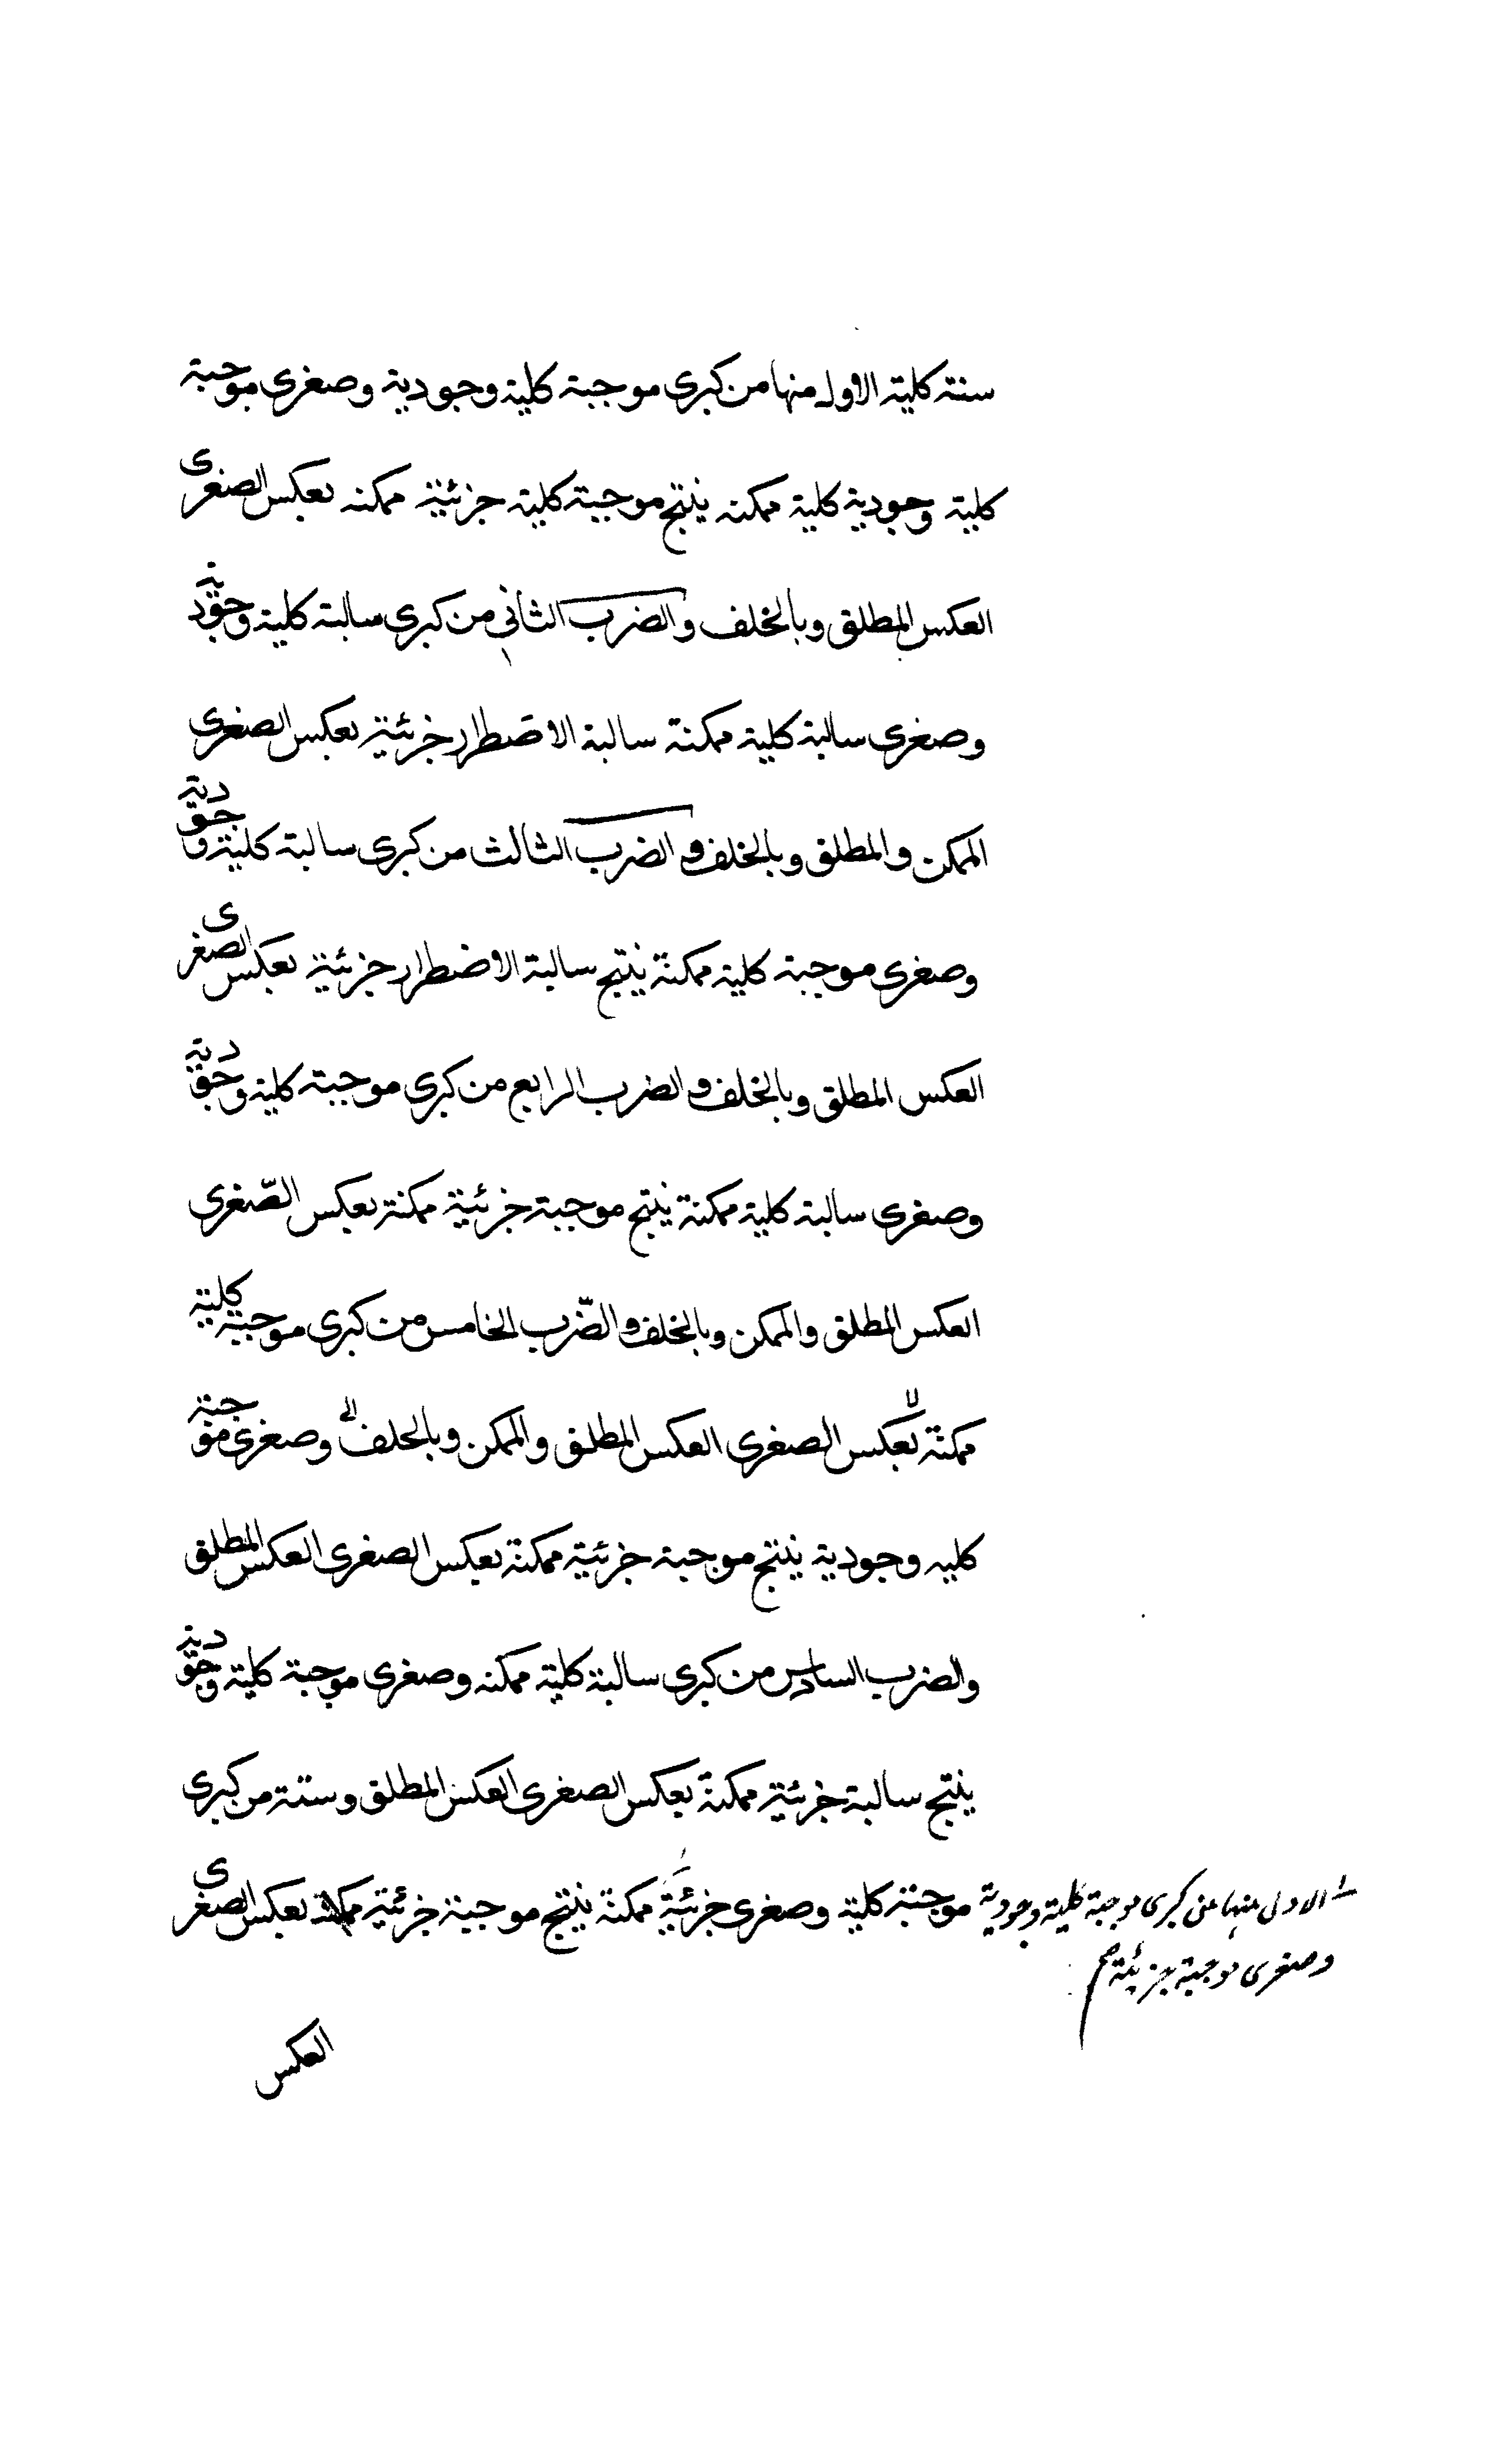 ستة كلية الاول منها من كبرى موجبة كلية وجودية وصغرى موجبة
كلية وجودية كلية ممكنه ينتج موجبة كلية جزئية ممكنه بعكس الصغرى
العكس المطلق وبالخلف والضرب الثاني من كبرى سالبة كلية وجودية
وصغرى سالبة كلية ممكنة سالبة الاضطرار جزئية بعكس الصغرى
الممكن والمطلق وبالخلف والضرب الثالث من كبرى سالبة كلية وجودية
وصغرى موجبة كلية ممكنة ينتج سالبة الاضطرار جزئية بعكس الصغرى
العكس المطلق وبالخلف والضرب الرابع من كبرى موجبة كلية وجودية
وصغرى سالبة كلية ممكنة ينتج موجبة جزئية ممكنة بعكس الصّغرى
العكس المطلق والممكن وبالخلف والضّرب الخامس من كبرى موجبة كلية
ممكنة بعكس الصغرى العكس المطلق والممكن وبالخلف وصغرى موجبة
كليه وجودية ينتج موجبة جزئية ممكنة بعكس الصغرى العكس المطلق
والضرب السادس من كبرى سالبة كلية ممكنه وصغرى موجبة كلية وجودية
ينتج سالبة جزئية ممكنة بعكس الصغرى العكس المطلق وستة من كبرى
موجبة كلية وصغرى جزئية ممكنة ينتج موجبة جزئية ممكنة بعكس الصغرى
الاول منها من كبرى موجبة كلية وجودية
وصغرى موجبة جزئية
العكس